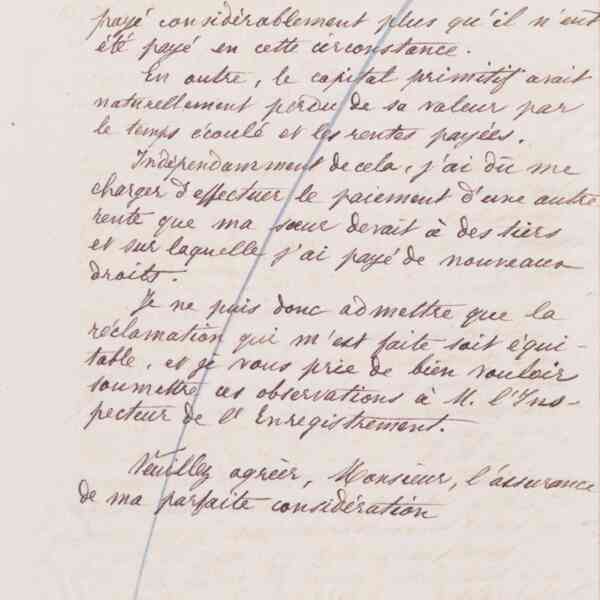 payé considérablement plus qu'il n'eut
été payé en cette circonstance.
En outre, le capital primitif avait
naturellement perdu de sa valeur par
le temps écoulé et les rentes payées.
Indépendamment de cela, j'ai dû me
charger d'effectuer le paiement d'une autre
rente que ma sœur devait à des tiers
et sur laquelle j'ai payé de nouveaux
droits.
Je ne puis donc admettre que la
réclamation qui m'est faite soit équi-
table, et je vous prie de bien vouloir
soumettre ces observations à M. l'Ins-
pecteur de l'Enregistrement.
Veuillez agréer, Monsieur, l'assurance
de ma parfaite considération